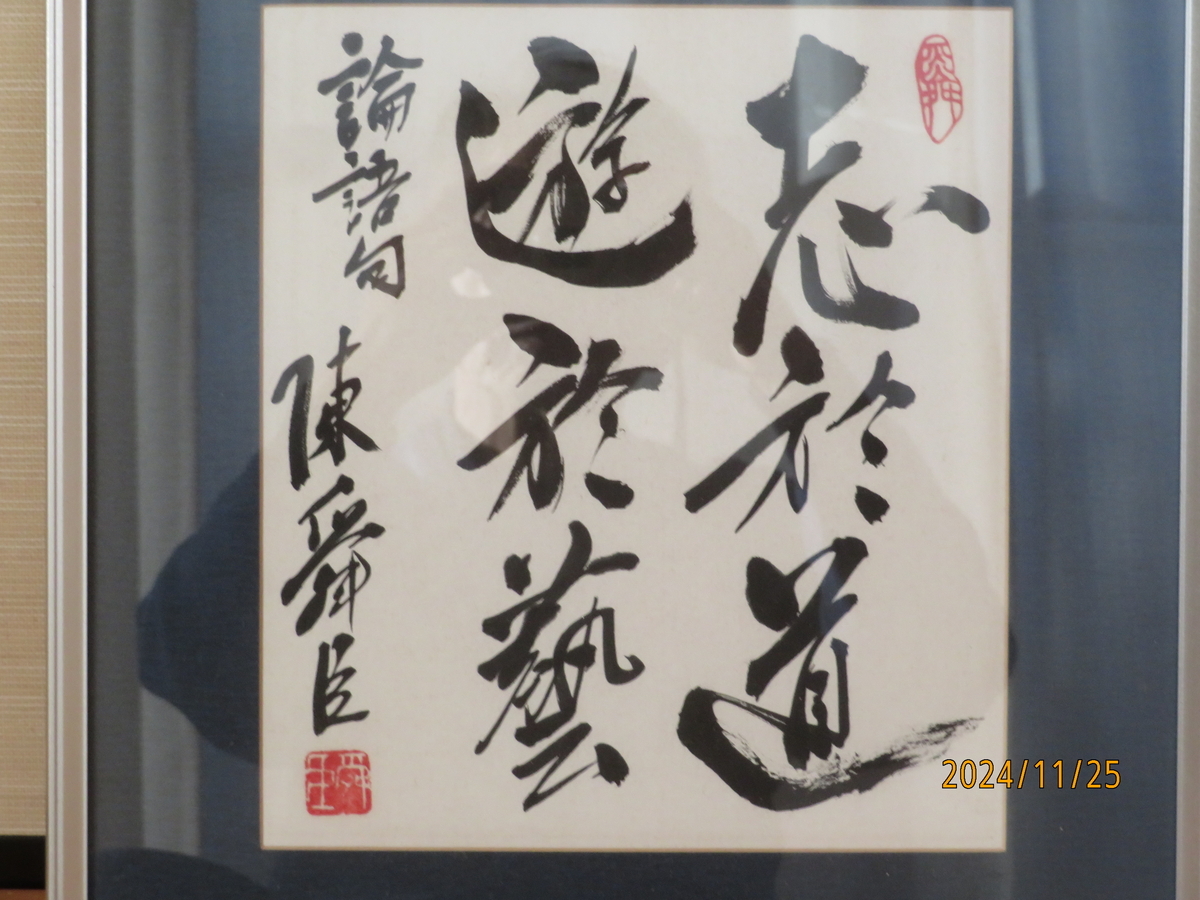 志於道
遊於藝
論語句 陳舜臣
2024/11/25